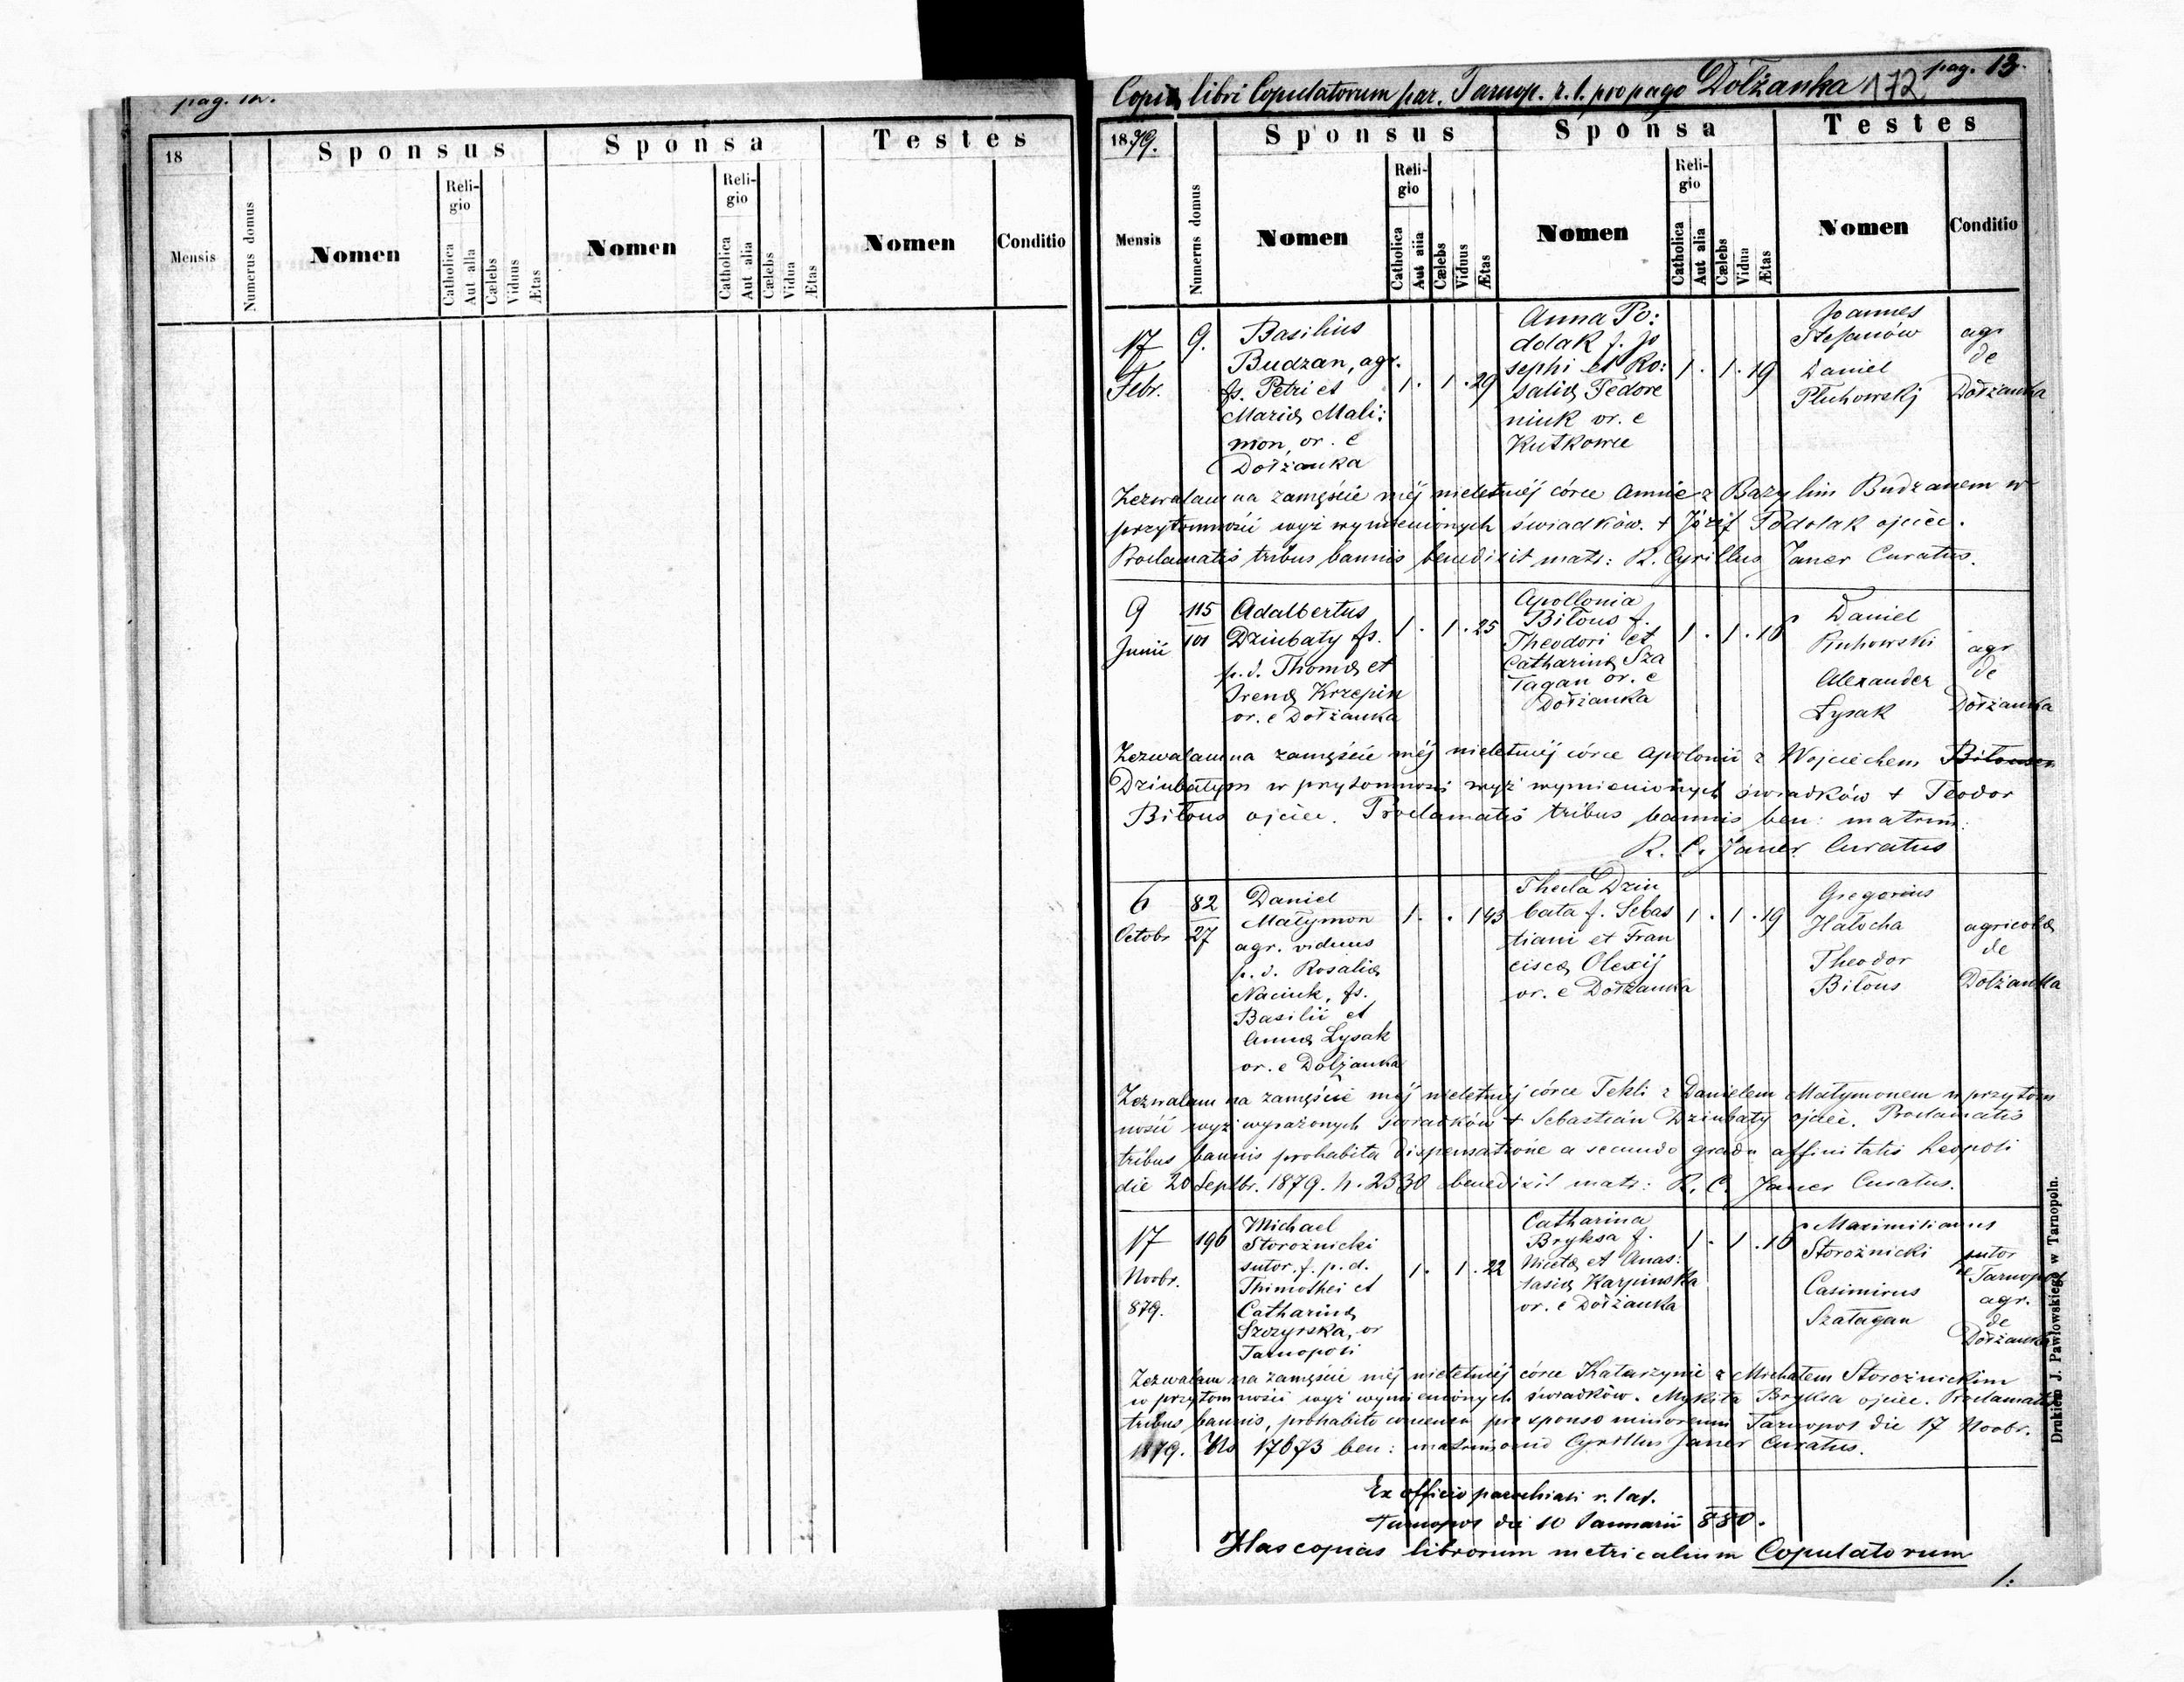 pag. 12.
18
Sponsus
Sponsa
Testes
Mensis
Numerus domus
Nomen
Religio
Catholica
Aut alia
Cælebs
Viduus
Ætas
Nomen
Religio
Catholica
Aut alia
Cælebs
Vidua
Ætas
Nomen
Conditio
Copia libri Copulatorum par. Tarnop. r. l. pro pago Dołżanka 172 pag. 13.
1879.
Sponsus
Sponsa
Testes
Mensis
Numerus domus
Nomen
Religio
Catholica
Aut alia
Cælebs
Viduus
Ætas
Nomen
Religio
Catholica
Aut alia
Cælebs
Vidua
Ætas
Nomen
Conditio
17
Febr.
9.
Basilius
Budzan, agr.
fs. Petri et
Mariæ Mali:
mon, or. e
Dołżanka
1 . 1 . 29
Anna Po:
dolak f. Jo
sephi et Ro:
saliæ Fedore
niuk or. e
Kutkowce
1 . 1 . 19
Joannes
Stefanów
Daniel
Pluhowskj
agr
de
Dołżanka
Zezwalam na zamęście mej nieletniéj córce Annie z Bazylim Budzanem w
przytomności wyż wymienionych świadków. + Józif Podolak ojciec.
Proclamatis tribus bannis benedixit matr: R. Cyrillus Janer Curatus.
9
Junii
115
101
Adalbertus
Dziubaty fs.
p. d. Thomæ et
Irenæ Krzepin
or. e Dołżanka
1 . 1 . 25
Apollonia
Biłous f.
Theodori et
Catharinæ Sza
łagan or. e
Dołżanka
1 . 1 . 18
Daniel
Pluhowski
Alexander
Łysak
agr
de
Dołżanka
Zezwalam na zamęście méj nieletniéj córce Apolonii z Wojciechem Biłousem
Dziubatym w przytomności wyż wymienionych świadków + Teodor
Biłous ojciec. Proclamatis tribus bannis ben: matrim:
R. C. Janer Curatus
6
Octobr
82
27
Daniel
Małymon
agr. viduus
p. d. Rosaliæ
Naciuk, fs.
Basilii et
Annæ Lysak
or. e Dołżanka
1 . . 1 43
Thecla Dziu
bata f. Sebas
tiani et Fran
ciscæ Olexij
or. e Dołżanka
1 . 1 . 19
Gregorius
Hałocha
Theodor
Biłous
agricolæ
de
Dołżanka
Zezwalam na zamęście méj nieletniéj córce Tekli z Danielem Małymonem w przytom
ności wyż wyrażonych świadków + Sebastian Dziubaty ojciec. Proclamatis
tribus bannis prohabita dispensatione a secundo gradu affinitatis Leopoli
die 20 Septbr. 1879. N. 2530 benedixit matr: R. C. Janer Curatus.
17
Novbr.
879.
196
Michael
Storożnicki
sutor. f. p. d.
Thimothei et
Catharinæ
Szczyrska, or
Tarnopoli
1 . 1 . 22
Catharina
Bryksa f.
Nicetæ et Anas:
tasiæ Karpinska
or. e Dołżanka
1 . 1 . 18
Maximilianus
Storożnicki
Casimirus
Szałagan
sutor
de Tarnopol
agr.
de
Dołżanka
Zezwalam na zamęście méj nieletniéj córce Katarzynie z Michałem Storożnickim
w przytomności wyż wymienionych świadków. Mykita Bryksa ojciec. Proclamatis
tribus bannis, prohabito consensu pro sponso minorenni Tarnopol die 17 Novbr.
1879. No 17673 ben: matrimonio Cyrillus Janer Curatus.
Ex officio parochiali r. lat.
Tarnopol die 10 Januarii 880.
Has copias librorum metricalium Copulatorum
/:
Drukiem J. Pawłowskiego w Tarnopolu.